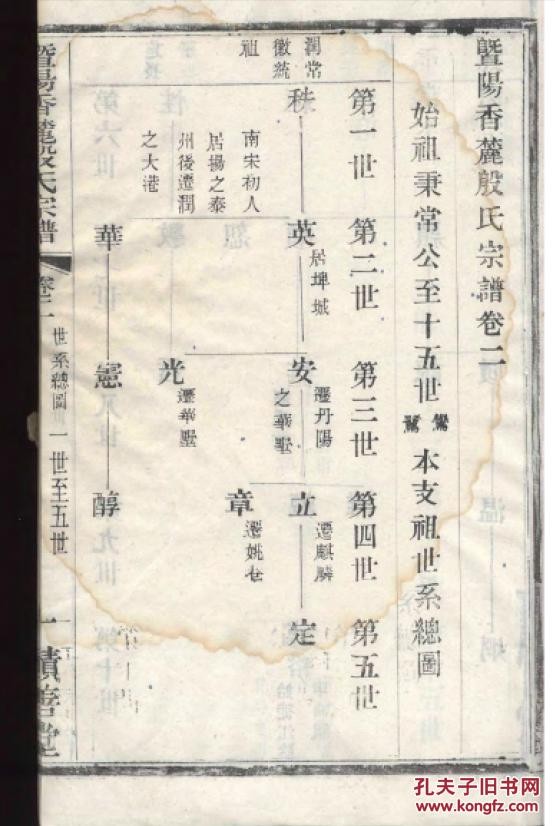 暨陽香麓殷氏宗譜卷二
始祖秉常公至十五世鸞鷟本支祖世系總圖
第一世
第二世
第三世
第四世
第五世
潤常
徽統
祖
秩
英
安
立
定
南宋初人
居揚之泰
州後遷潤
之大港
居埤城
遷丹陽
之華墅
遷麒麟
章
遷姚巷
光
遷華墅
華
憲
醇
暨陽香麓殷氏宗譜
卷二
世系總圖
一世至五世
一
積善堂
孔夫子旧书网
www.kongfz.com